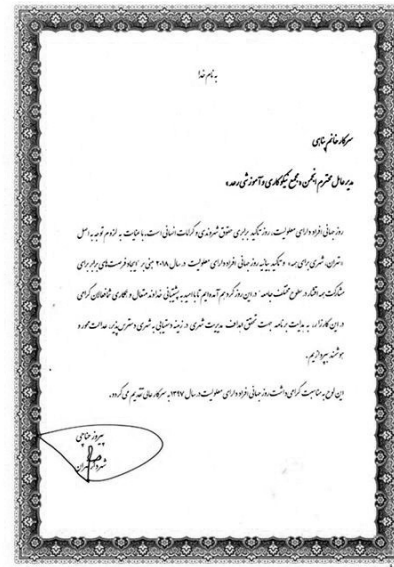 به نام خدا
سرکار خانم پناهی
مدیرعامل محترم انجمن و مجتمع نیکوکاری و آموزشی رعد
روز جهانی افراد دارای معلولیت، روز تاکید بر برابری حقوق شهروندی و کرامات انسانی است، با عنایت به لزوم توجه به اصل
«تهران، شهری برای همه» و تاکید بیانیه روز جهانی افراد دارای معلولیت در سال ۲۰۱۸ مبنی بر «ایجاد فرصت‌های برابر برای
مشارکت همه اقشار در سطوح مختلف جامعه» در این روز گرد هم آمده‌ایم تا با امید به پشتیبانی خداوند متعال و همکاری شما فعالان گرامی
در این کارزار، به هدایت برنامه جهت تحقق اهداف مدیریت شهری در زمینه دستیابی به شهری دسترس‌پذیر، عدالت محور و
هوشمند بپردازیم.
این لوح به مناسبت گرامی داشت روز جهانی افراد دارای معلولیت در سال ۱۳۹۷ به سرکار عالی تقدیم می گردد.
پیروز حناچی
شهردار تهران